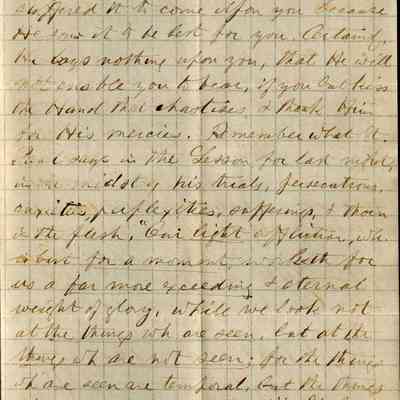 suffered it to come upon you because
He saw it to be best for you. Certainly,
He lays nothing upon you, that He will
not enable you to bear, if you but kiss
the Hand that chastises, & thank Him
for His mercies. Remember what St.
Paul says in the Lesson for last night,
in the midst of his trials, persecutions,
anxieties, perplexities, sufferings, & thorn
in the flesh, "Our light affliction, wh
is but for a moment, worketh for
us a far more exceeding & eternal
weight of glory, while we look not
at the things wh are seen, but at the
things wh are not seen; for the things
wh are seen are temporal, but the things